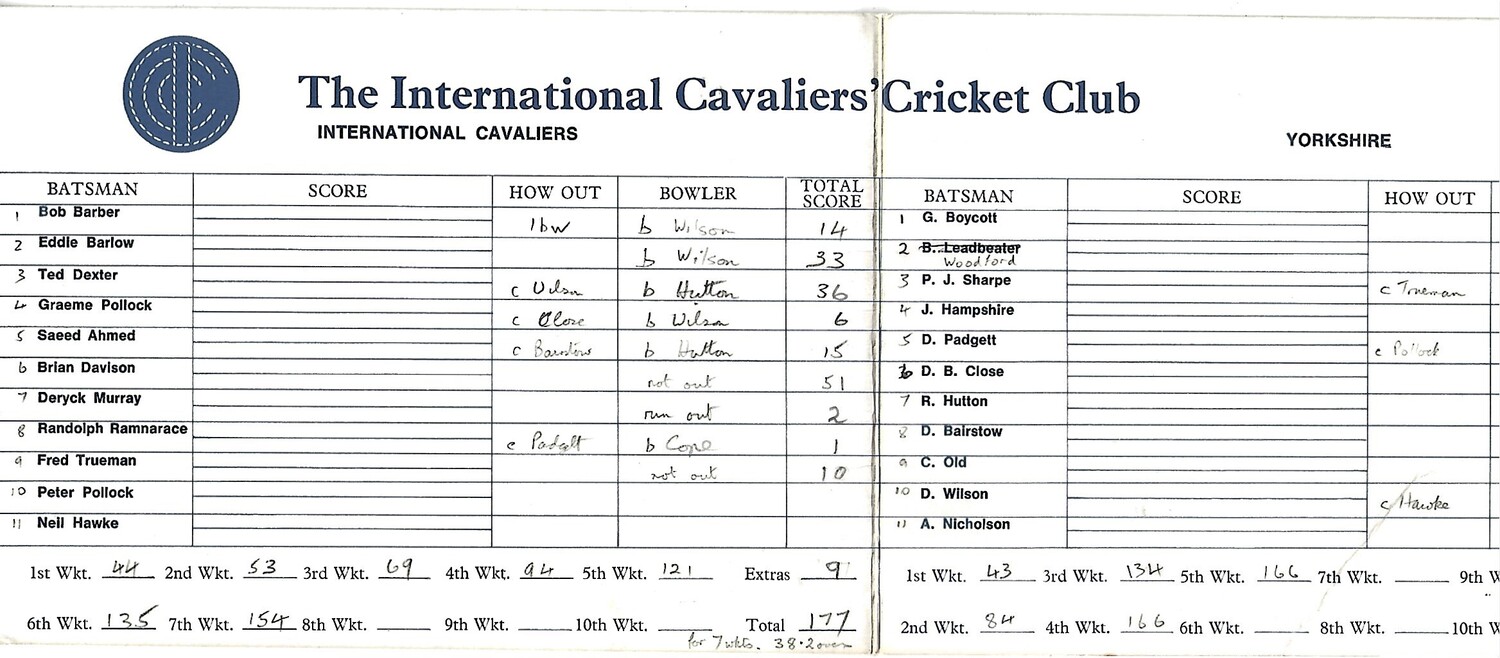 The International Cavaliers' Cricket Club
INTERNATIONAL CAVALIERS
YORKSHIRE
BATSMAN SCORE HOW OUT BOWLER TOTAL SCORE
1 Bob Barber lbw b Wilson 14
2 Eddie Barlow b Wilson 33
3 Ted Dexter c Wilson b Hutton 36
4 Graeme Pollock c Close b Wilson 6
5 Saeed Ahmed c Bairstow b Hutton 15
6 Brian Davison not out 51
7 Deryck Murray run out 2
8 Randolph Ramnarace c Padgett b Cope 1
9 Fred Trueman not out 10
10 Peter Pollock
11 Neil Hawke
1st Wkt. 44 2nd Wkt. 53 3rd Wkt. 69 4th Wkt. 94 5th Wkt. 121 Extras 9
6th Wkt. 135 7th Wkt. 154 8th Wkt. 9th Wkt. 10th Wkt. Total 177
for 7 wkts. 38.2 overs
BATSMAN SCORE HOW OUT
1 G. Boycott
2 B. Leadbeater
Woodford
3 P. J. Sharpe c Trueman
4 J. Hampshire
5 D. Padgett c Pollock
6 D. B. Close
7 R. Hutton
8 D. Bairstow
9 C. Old
10 D. Wilson c Hawke
11 A. Nicholson
1st Wkt. 43 3rd Wkt. 134 5th Wkt. 166 7th Wkt. 9th W
2nd Wkt. 84 4th Wkt. 166 6th Wkt. 8th Wkt. 10th W